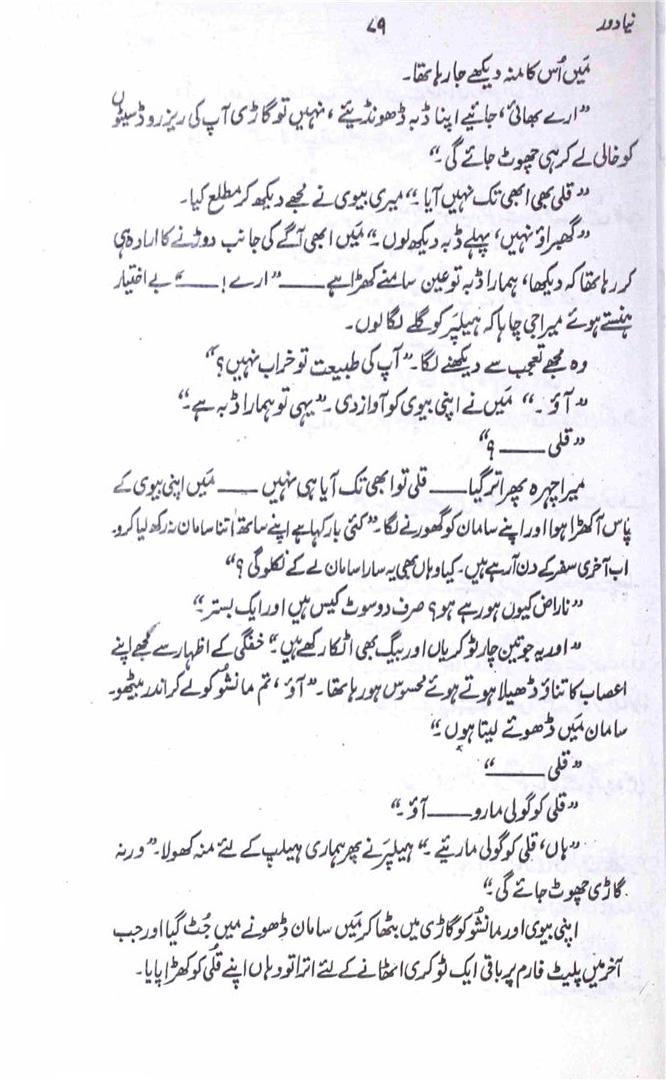 نیا دور ۷۹
مَیں اُس کا منہ دیکھے جا رہا تھا۔
”ارے بھائی، جائیے اپنا ڈبہ ڈھونڈیئے، نہیں تو گاڑی آپ کی ریزروڈ سیٹوں
کو خالی لے کر ہی چھوٹ جائے گی۔“
”قلی بھی ابھی تک نہیں آیا۔“ میری بیوی نے مجھے دیکھ کر مطلع کیا۔
”گھبراؤ نہیں، پہلے ڈبہ دیکھ لوں۔“ مَیں ابھی آگے کی جانب دوڑنے کا ارادہ ہی
کر رہا تھا کہ دیکھا، ہمارا ڈبہ تو عین سامنے کھڑا ہے ——— ”ارے! ———“ بے اختیار
ہنستے ہوئے میرا جی چاہا کہ ہیلپر کو گلے لگا لوں۔
وہ مجھے تعجب سے دیکھنے لگا۔ ”آپ کی طبیعت تو خراب نہیں؟“
”آؤ۔“ مَیں نے اپنی بیوی کو آواز دی۔ ”یہی تو ہمارا ڈبہ ہے۔“
”قلی ——— ؟“
میرا چہرہ پھر اتر گیا ——— قلی تو ابھی تک آیا ہی نہیں ——— مَیں اپنی بیوی کے
پاس آ کھڑا ہوا اور اپنے سامان کو گھورنے لگا۔ ”کئی بار کہا ہے اپنے ساتھ اتنا سامان نہ رکھ لیا کرو۔
اب آخری سفر کے دن آ رہے ہیں۔ کیا وہاں بھی یہ سارا سامان لے کے نکلو گی؟“
”ناراض کیوں ہو رہے ہو؟ صرف دو سوٹ کیس ہیں اور ایک بستر۔“
”اور یہ جو تین چار ٹوکریاں اور بیگ بھی اٹکا رکھے ہیں۔“ خفگی کے اظہار سے مجھے اپنے
اعصاب کا تناؤ ڈھیلا ہوتے ہوئے محسوس ہو رہا تھا۔ ”آؤ، تم مانشُو کو لے کر اندر بیٹھو۔
سامان مَیں ڈھوئے لیتا ہوں۔“
”قلی ———“
”قلی کو گولی مارو ——— آؤ۔“
”ہاں، قلی کو گولی ماریئے۔“ ہیلپر نے پھر ہماری ہیلپ کے لئے منہ کھولا۔ ”ورنہ
گاڑی چھوٹ جائے گی۔“
اپنی بیوی اور مانشُو کو گاڑی میں بٹھا کر مَیں سامان ڈھونے میں جُٹ گیا اور جب
آخر میں پلیٹ فارم پر باقی ایک ٹوکری اٹھانے کے لئے اترا تو وہاں اپنے قُلی کو کھڑا پایا۔